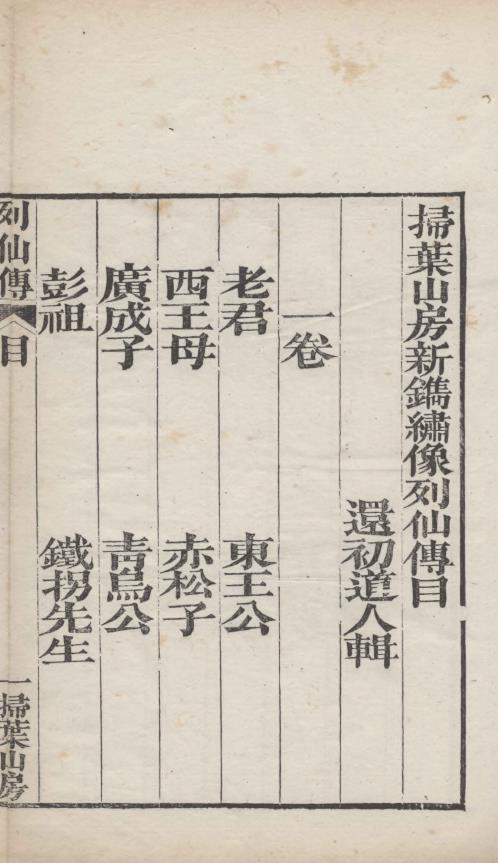 掃葉山房新鐫繡像列仙傳目
還初道人輯
一卷
老君 東王公
西王母 赤松子
廣成子 青烏公
彭祖 鐵拐先生
列仙傳 目 一 掃葉山房